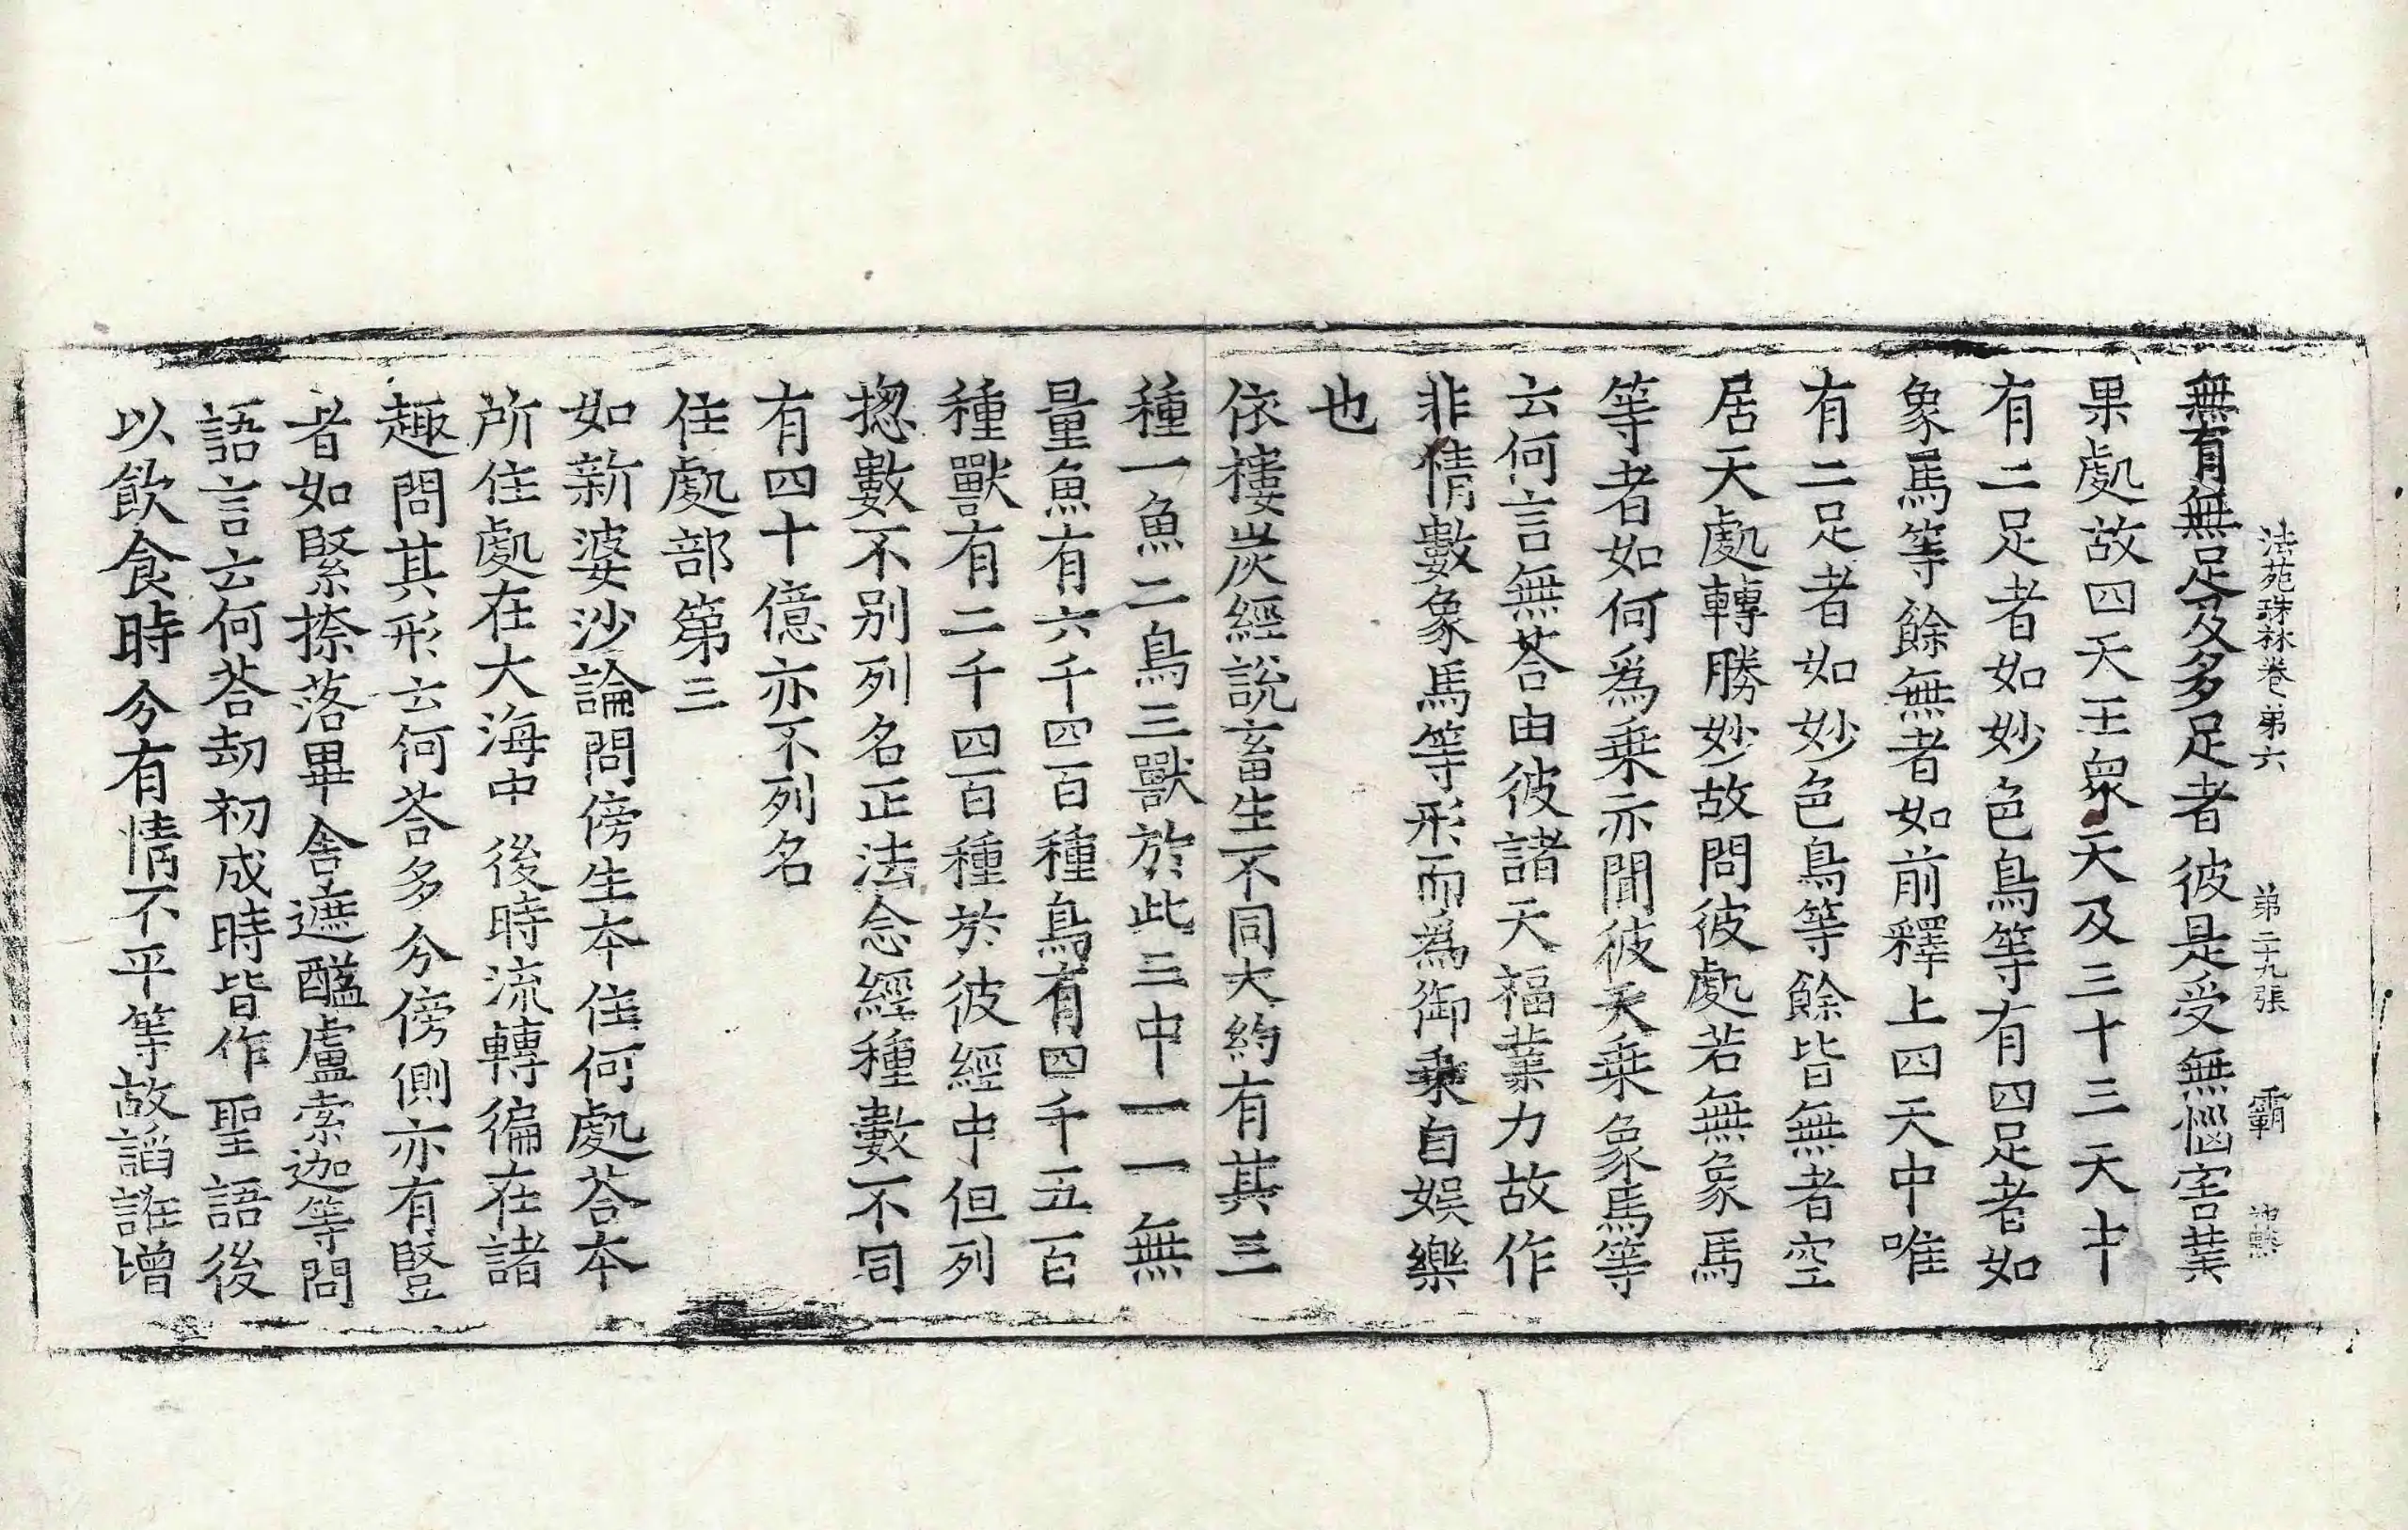 法苑珠林卷第六 第二十九張 霸
無有無足及多足者彼是受無惱害業
果處故四天王衆天及三十三天中
有二足者如妙色鳥等有四足者如
象馬等餘無者如前釋上四天中唯
有二足者如妙色鳥等餘皆無者空
居天處轉勝妙故問彼處若無象馬
等者如何爲乗亦聞彼天乗象馬等
云何言無荅由彼諸天福業力故作
非情數象馬等形而爲御乗自娛樂
也
依樓炭經說畜生不同大約有其三
種一魚二鳥三獸於此三中一一無
量魚有六千四百種鳥有四千五百
種獸有二千四百種於彼經中但列
揔數不别列名正法念經種數不同
有四十億亦不列名
住處部第三
如新婆沙論問傍生本住何處荅本
所住處在大海中後時流轉徧在諸
趣問其形云何荅多分傍側亦有豎
者如緊捺落畢舍遮醯盧索迦等問
語言云何荅劫初成時皆作聖語後
以飲食時分有情不平等故諂誑增